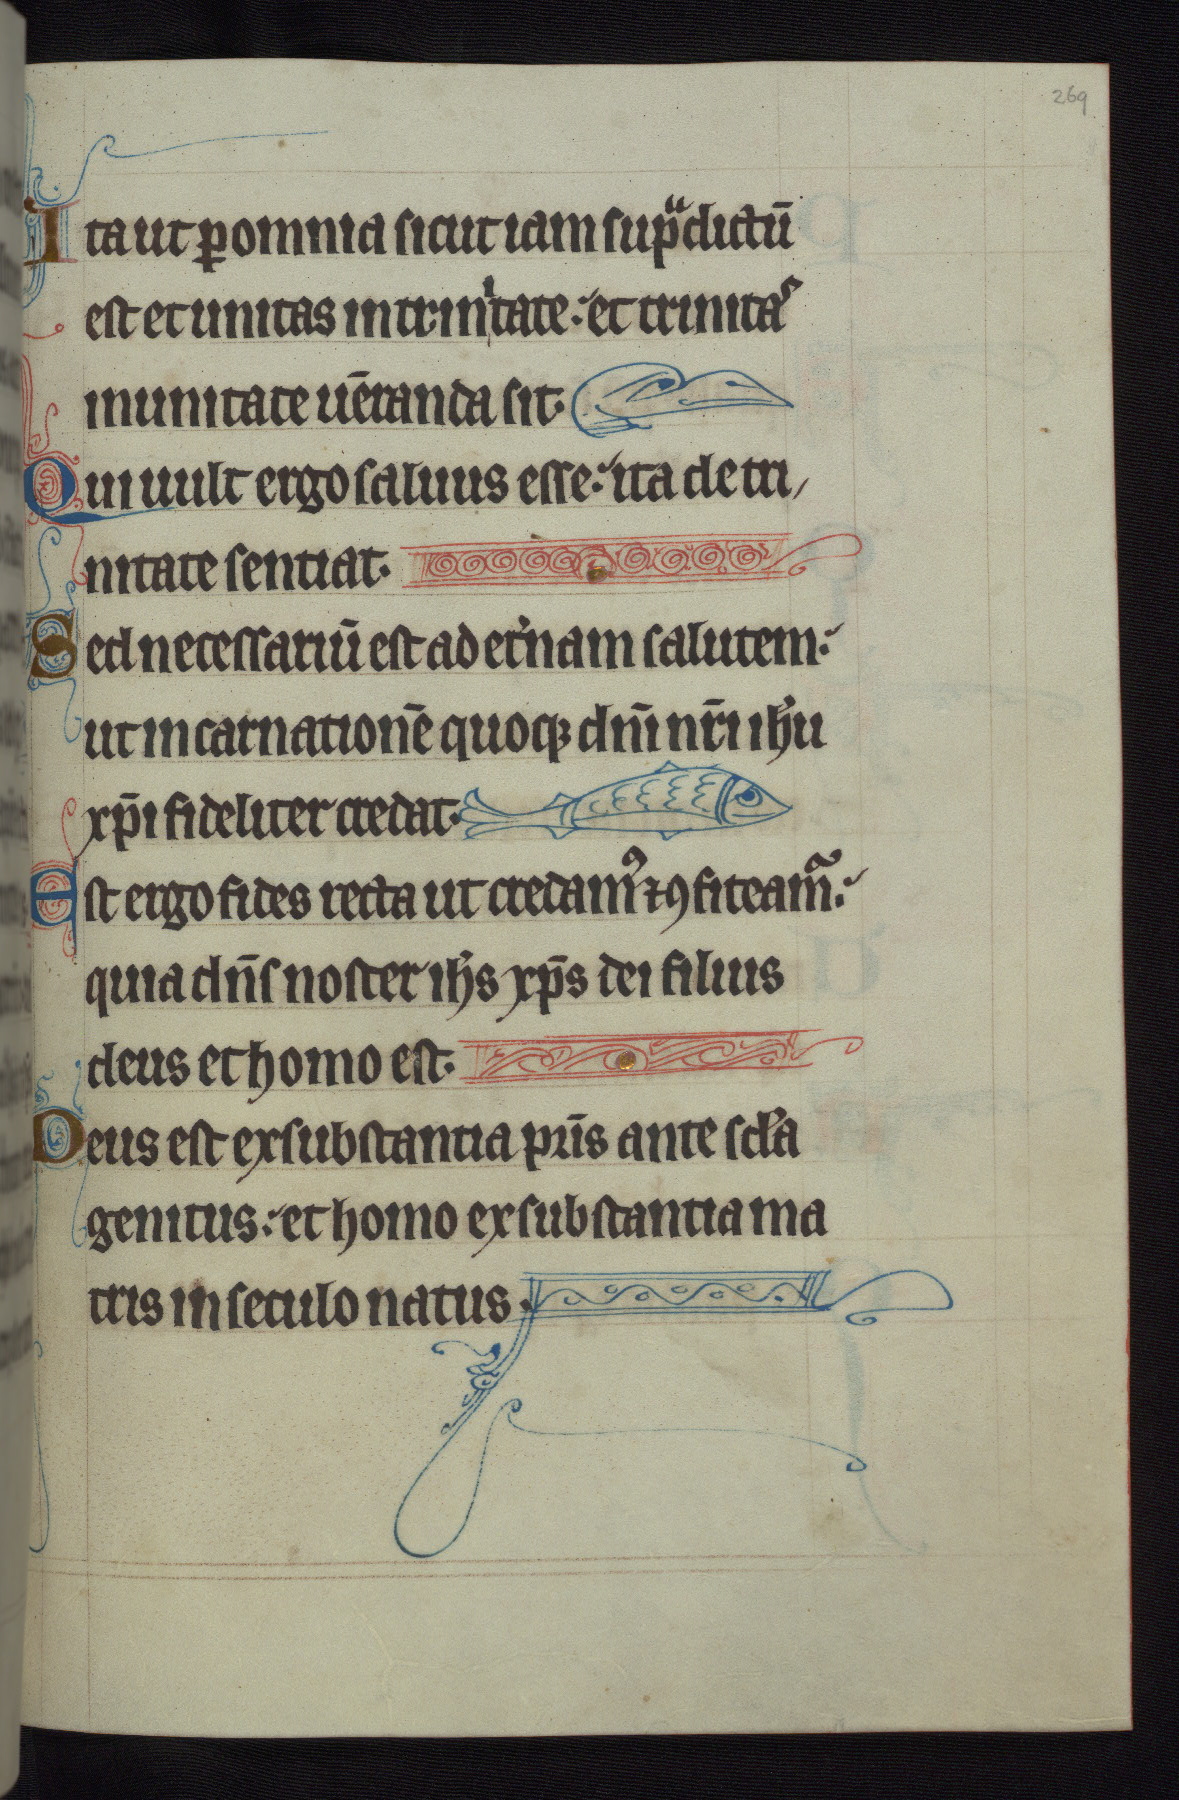 269
Ita ut ꝑ omnia sicut iam supᵃdictū
est et unitas in trinitate: et trinitas
in unitate uēneranda sit.
Qui uult ergo saluus esse: ita de tri
nitate sentiat.
Sed necessariū est ad et̾nam salutem:
ut incarnationē quoqꝫ dn̄i nr̄i ih̄u
xp̄i fideliter credat.
Est ergo fides recta ut credamꝰ ⁊ ꝯfiteam̃:
quia dn̄s noster ih̄s xp̄s dei filius
deus et homo est.
Deus est ex substantia pr̄is ante scl̄a
genitus: et homo ex substantia ma
tris in seculo natus.